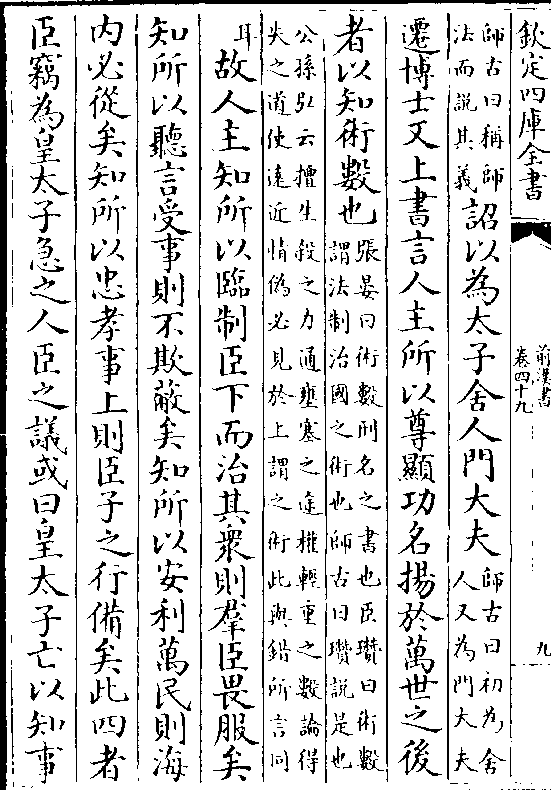 欽定四庫全書
前漢書
卷四十九
九
師古曰稱師
法而說其義
詔以為太子舍人門大夫
師古曰初為舍
人又為門大夫
遷博士又上書言人主所以尊顯功名揚於萬世之後
者以知術數也
張晏曰術數刑名之書也臣瓚曰術數
謂法制治國之術也師古曰瓚說是也
公孫弘云擅生殺之力通壅塞之塗權輕重之數論得
失之道使遠近情偽必見於上謂之術此與錯所言同
耳
故人主知所以臨制臣下而治其衆則羣臣畏服矣
知所以聽言受事則不欺蔽矣知所以安利萬民則海
内必從矣知所以忠孝事上則臣子之行備矣此四者
臣竊為皇太子急之人臣之議或曰皇太子亡以知事